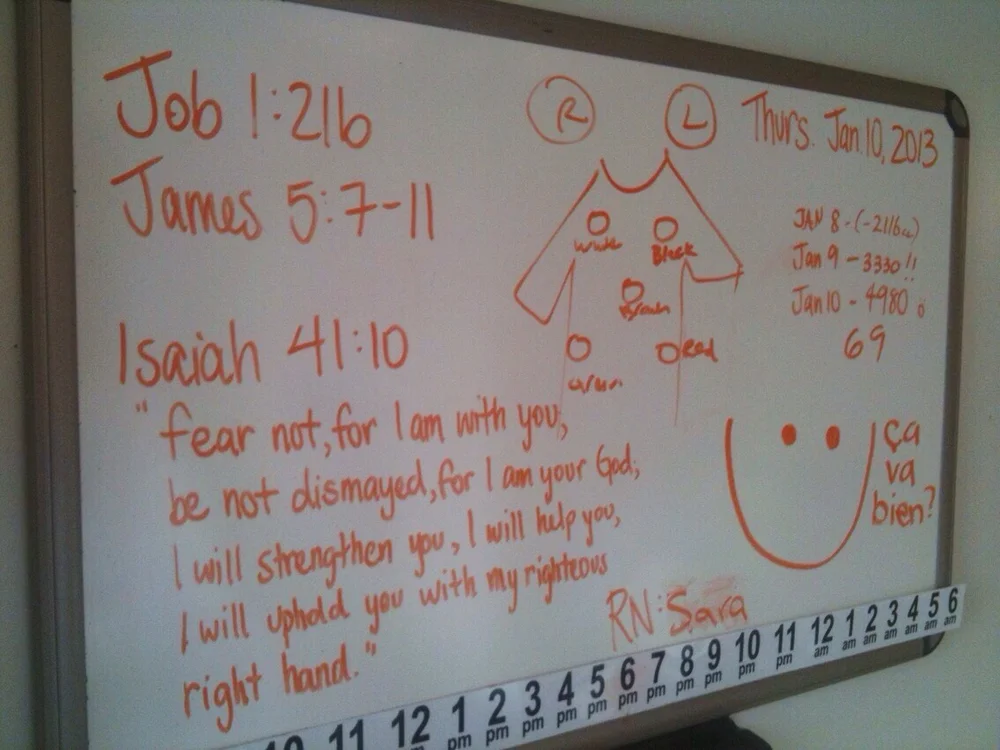 Job 1:21b
James 5:7-11
Isaiah 41:10
"fear not, for I am with you,
be not dismayed, for I am your God;
I will strengthen you, I will help you,
I will uphold you with my righteous
right hand."
R L
White Black
Brown
Green Red
Thurs. Jan 10, 2013
JAN 8 - (-2116cc)
Jan 9 - 3330!!
Jan 10 - 4980
69
ça
va
bien?
RN: Sara
10 11 12 1 2 3 4 5 6 7 8 9 10 11 12 1 2 3 4 5 6
pm pm pm pm pm pm pm pm pm pm pm am am am am am am am